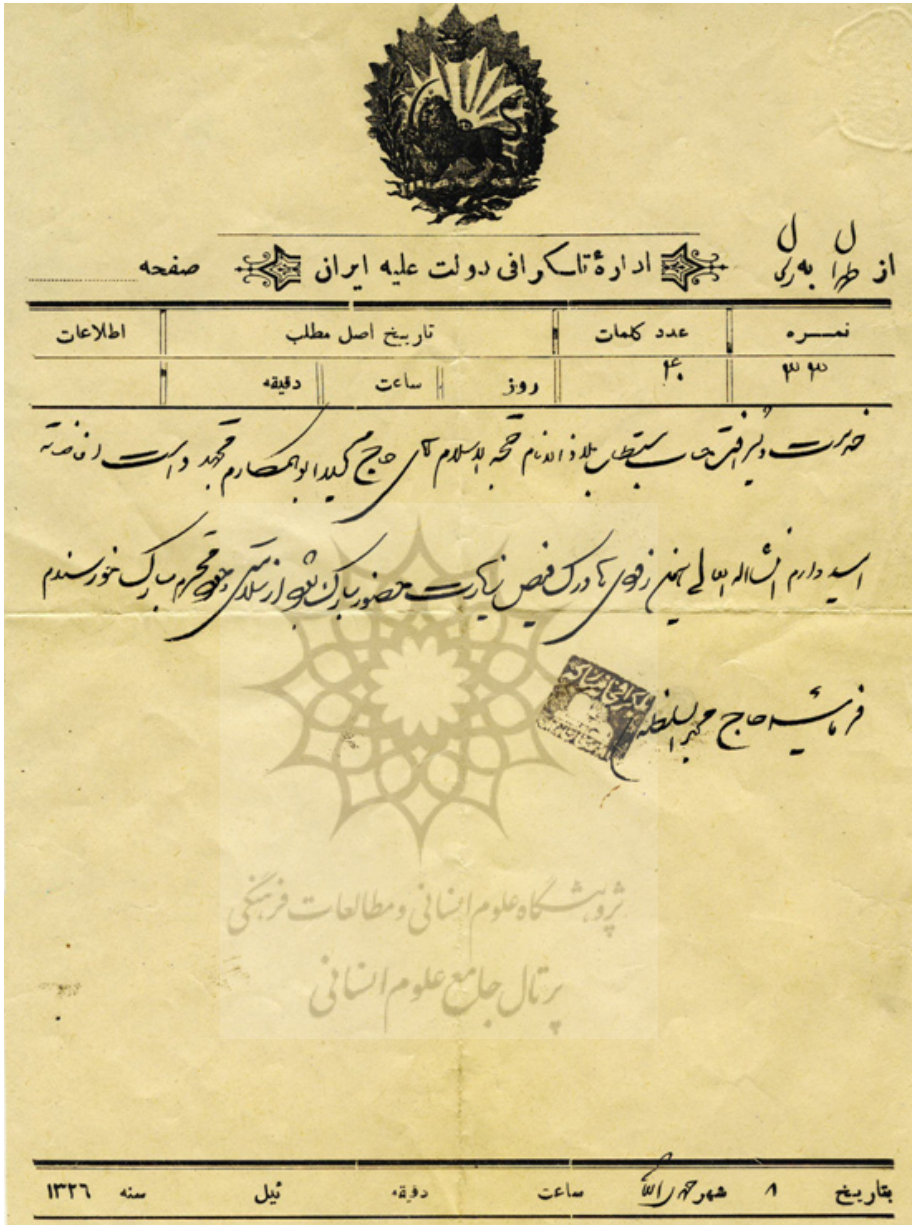 از طهران به ری
ادارهٔ تلگرافی دولت علیه ایران
صفحه
نمره
عدد کلمات
تاریخ اصل مطلب
اطلاعات
۳۳
۴۰
روز
ساعت
دقیقه
جناب مستطاب ملاذ الانام حجة الاسلام آقای حاج سید ابوالمکارم مجتهد دامت افاضاته
امیدوارم انشاالله تعالی بهمین زودی بادرک فیض زیارت حضور مبارک از سلامتی وجود محترم مبارک خورسندم
فرمانشه حاج مجیرالسلطنه
پژوهشگاه علوم انسانی و مطالعات فرهنگی
پرتال جامع علوم انسانی
بتاریخ ۸ شهر ساعت دقیقه ئیل سنه ۱۳۲۶